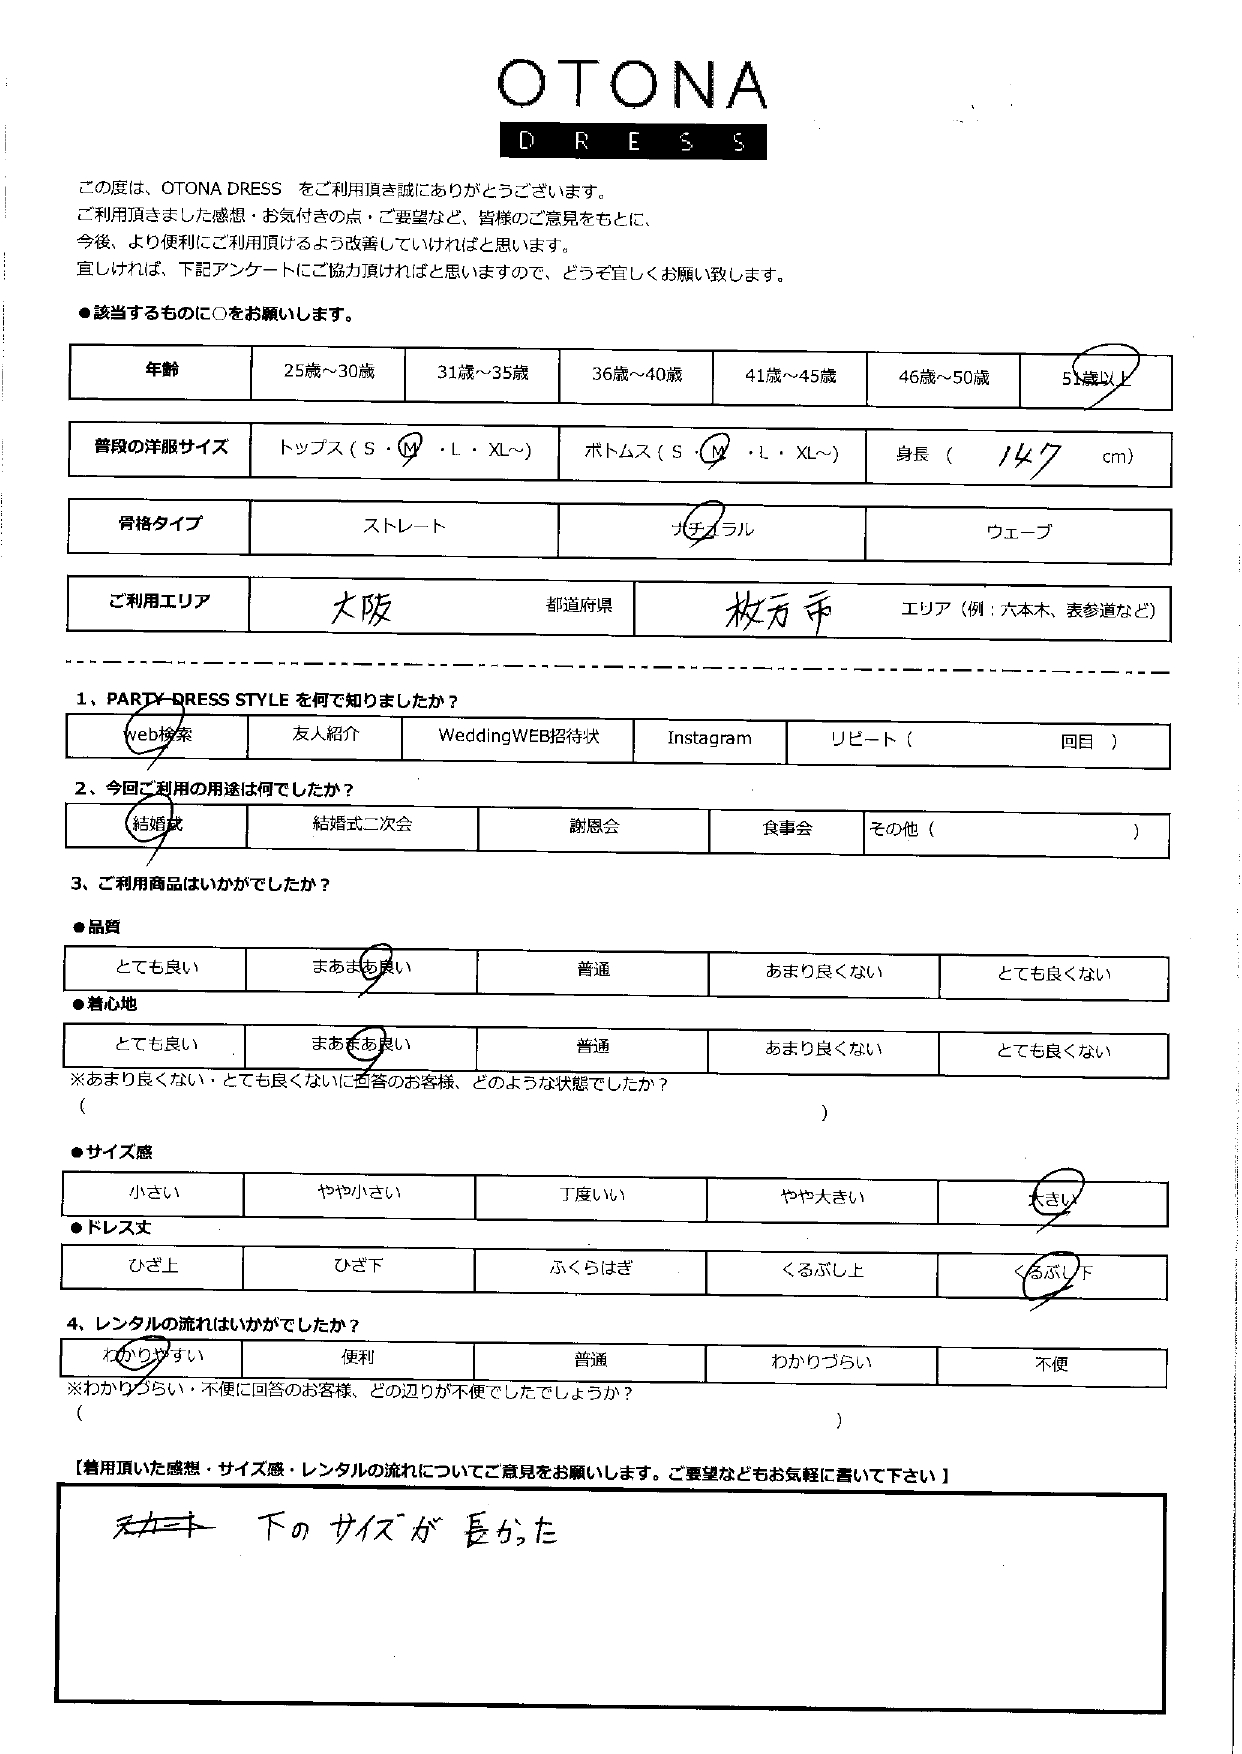 OTONA
DRESS
この度は、OTONA DRESS をご利用頂き誠にありがとうございます。
ご利用頂きました感想・お気付きの点・ご要望など、皆様のご意見をもとに、
今後、より便利にご利用頂けるよう改善していければと思います。
宜しければ、下記アンケートにご協力頂ければと思いますので、どうぞ宜しくお願い致します。
●該当するものに○をお願いします。
年齢 25歳～30歳 31歳～35歳 36歳～40歳 41歳～45歳 46歳～50歳 51歳以上
普段の洋服サイズ トップス ( S ・ M ・L ・ XL～) ボトムス ( S ・ M ・L ・ XL～) 身長 ( 147 cm)
骨格タイプ ストレート ナチュラル ウェーブ
ご利用エリア 大阪 都道府県 枚方市 エリア（例：六本木、表参道など）
1、PARTY DRESS STYLE を何で知りましたか？
web検索 友人紹介 WeddingWEB招待状 Instagram リピート ( 回目 )
2、今回ご利用の用途は何でしたか？
結婚式 結婚式二次会 謝恩会 食事会 その他 ( )
3、ご利用商品はいかがでしたか？
●品質
とても良い まあまあ良い 普通 あまり良くない とても良くない
●着心地
とても良い まあまあ良い 普通 あまり良くない とても良くない
※あまり良くない・とても良くないに回答のお客様、どのような状態でしたか？
( )
●サイズ感
小さい やや小さい 丁度いい やや大きい 大きい
●ドレス丈
ひざ上 ひざ下 ふくらはぎ くるぶし上 くるぶし下
4、レンタルの流れはいかがでしたか？
わかりやすい 便利 普通 わかりづらい 不便
※わかりづらい・不便に回答のお客様、どの辺りが不便でしたでしょうか？
( )
【着用頂いた感想・サイズ感・レンタルの流れについてご意見をお願いします。ご要望などもお気軽に書いて下さい 】
スカート 下の サイズが 長かった